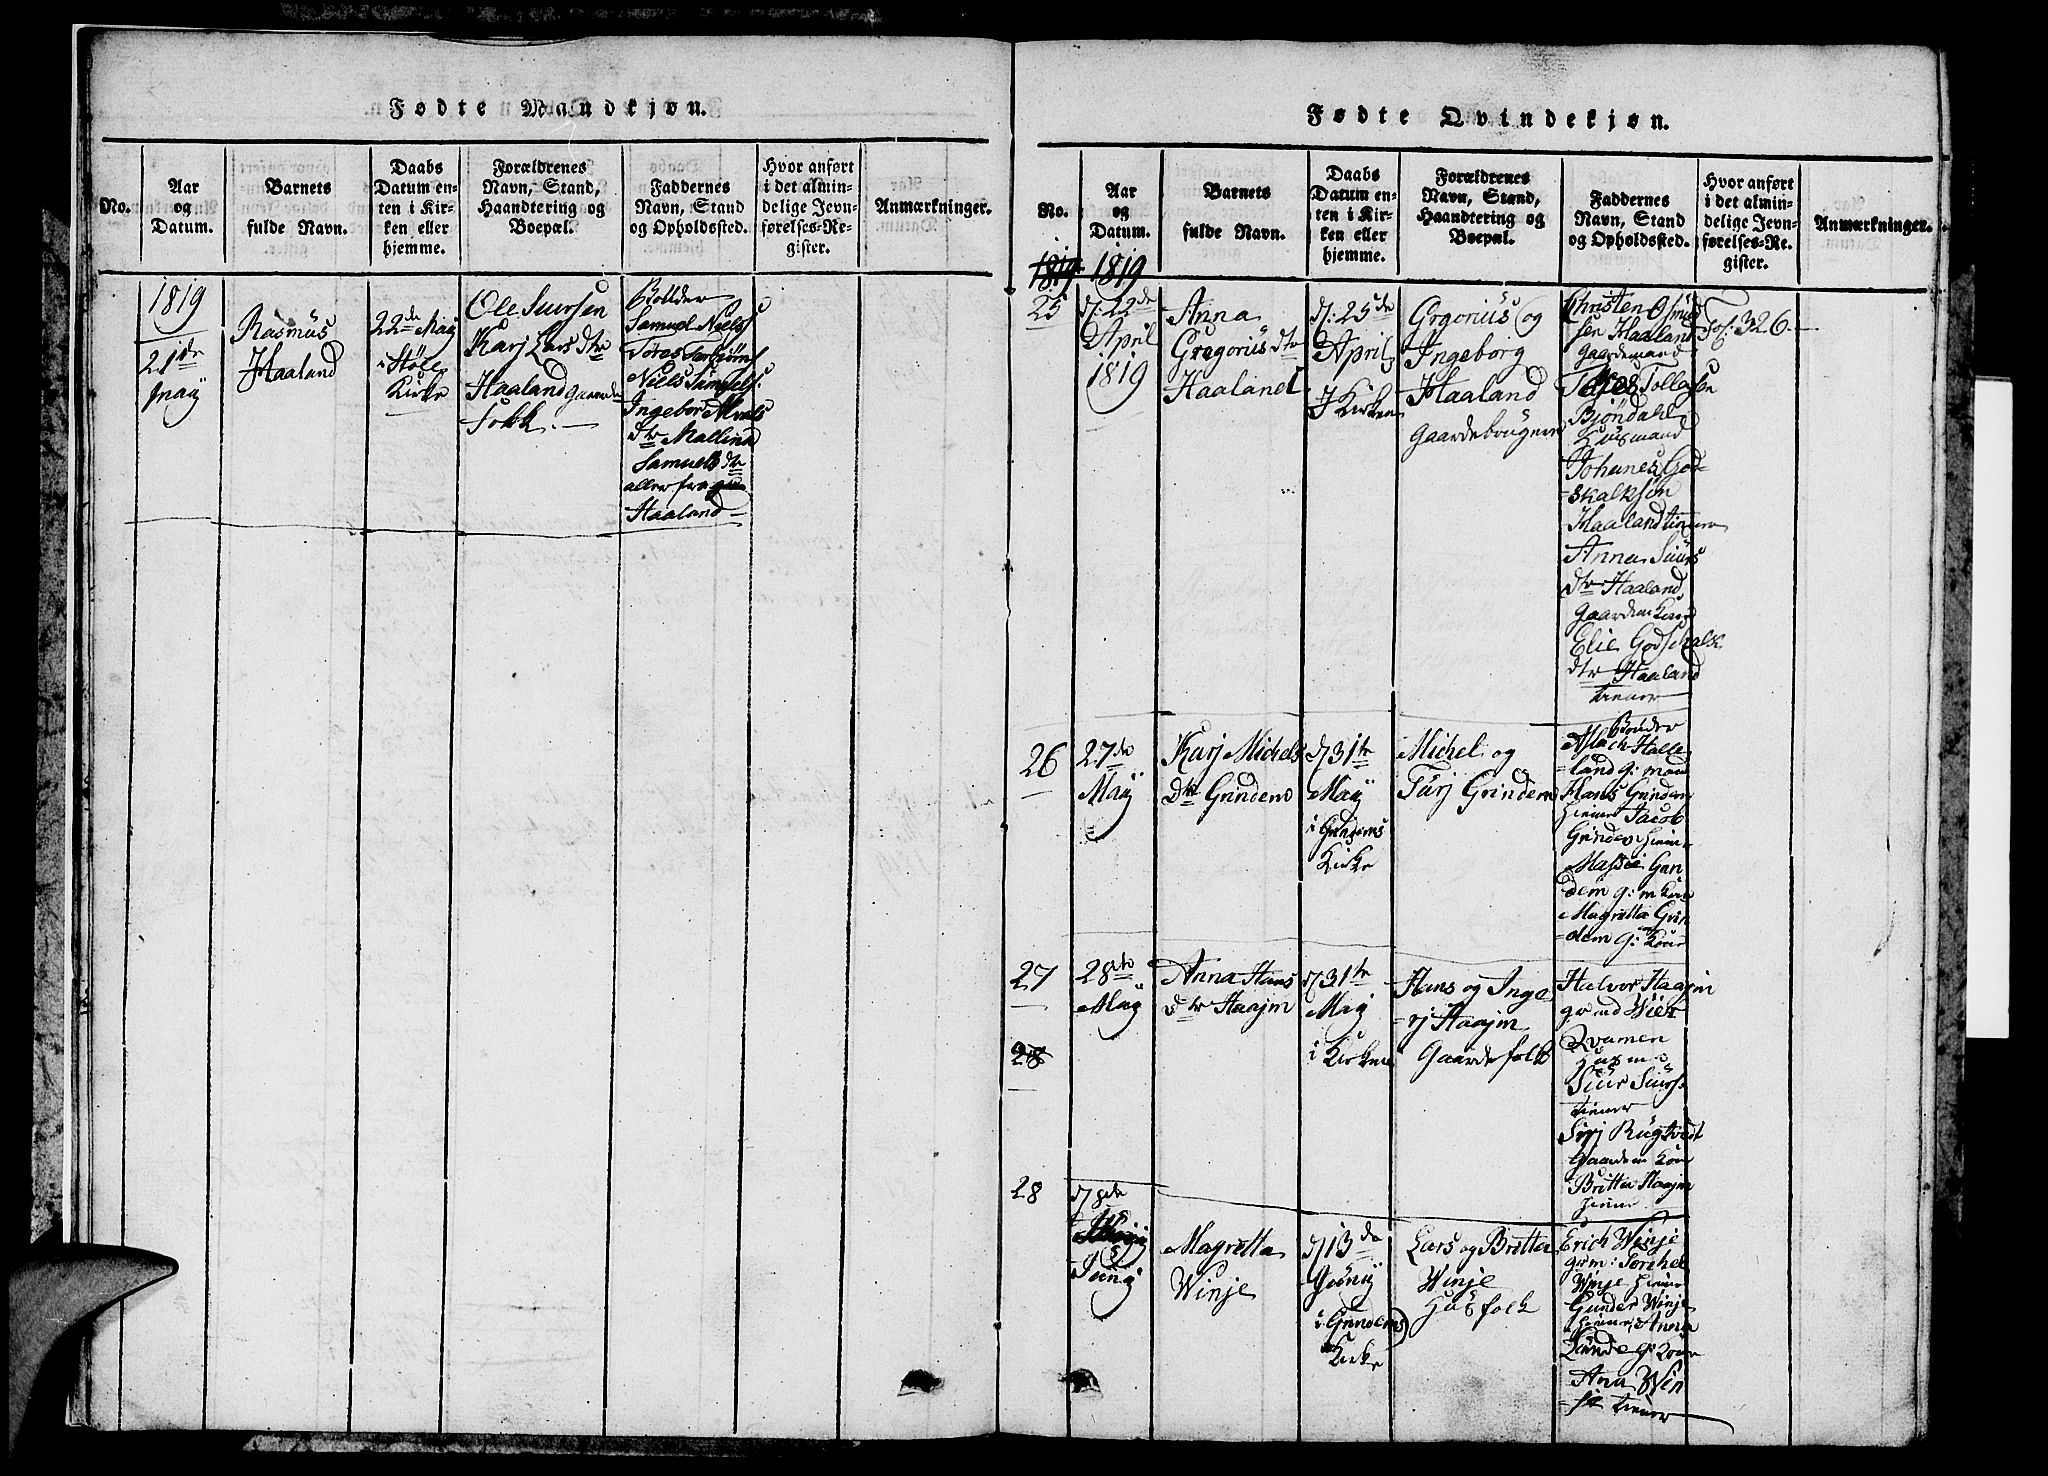 Fødte Mandkjøn.
No.
Aar
og
Datum.
Barnets
fulde Navn.
Daabs
Datum en-
ten i Kir-
ken eller
hjemme.
Forældrenes
Navn, Stand,
Haandtering og
Boepæl.
Faddernes
Navn, Stand
og Opholdssted.
Hvor anført
i det almin-
delige Jevn-
førelses-Re-
gister.
Anmærkninger.
1819
21de
May
Rasmüs
Haaland
22de May
i Kirke
Ole Siursen
Karj Lars dtr
Haaland gaarde
folk.
Samuel Niels
Niels Samuels:
Ingebor Niels
dtr Mallina
Samuels dtr
alle fra
Haaland
Fødte Qvindekjøn.
No.
Aar
og
Datum.
Barnets
fulde Navn.
Daabs
Datum en-
ten i Kir-
ken eller
hjemme.
Forældrenes
Navn, Stand,
Haandtering og
Boepæl.
Faddernes
Navn, Stand
og Opholdssted.
Hvor anført
i det almin-
delige Jevn-
førelses-Re-
gister.
Anmærkninger.
1819 1819
25
d: 22de
April
1819
Anna
Gregoriüs dtr
Haaland
d: 25de
April
I Kirken
Grgoriüs og
Ingeborg
Haaland
Gaardebrugere
Christen
sen Haaland
Gaardemand
Tollefsen
Bjöndahl
Huusmand
Johanes God-
skalksøn
Haaland tienere
Anna Siurs
dtr Haaland
gaardm Kone
Elie Godschalk
dtr Haaland
tiener
Fol: 326
26
27de
May
Karj Michels
dtr Grindem
d 31te
May
i Grindems
Kirke
Michel og
Türj Grindem
Bonder
Aslach Halle
land g: mand
Hans Grindem
tiener Jacob
Grindem tiener
Grin
dem g: m kone
Magretta Grin
dem g: Kone
27
28de
May
Anna Hans
dtr Haajm
d 31te
May
i Kirken
Hans og Inge
rj Haajm
Gaardefolk
Halvor Haajm
Kvamen
Siur Siurs
tiener
Sirj Rügtvedt
Gaardm Kone
Britta Haajm
tiener
28
28
d 8de
Junij
Magretta
Winje
d 13de
Juny
i Grindems
Kirke
Lars og Britta
Winje
Huusfolk
Erich Winje
grm: Torchel
Winje tiener
Gunder Winje
tiener, Anna
Lunde gr: Kone
Ana Win
je tiener